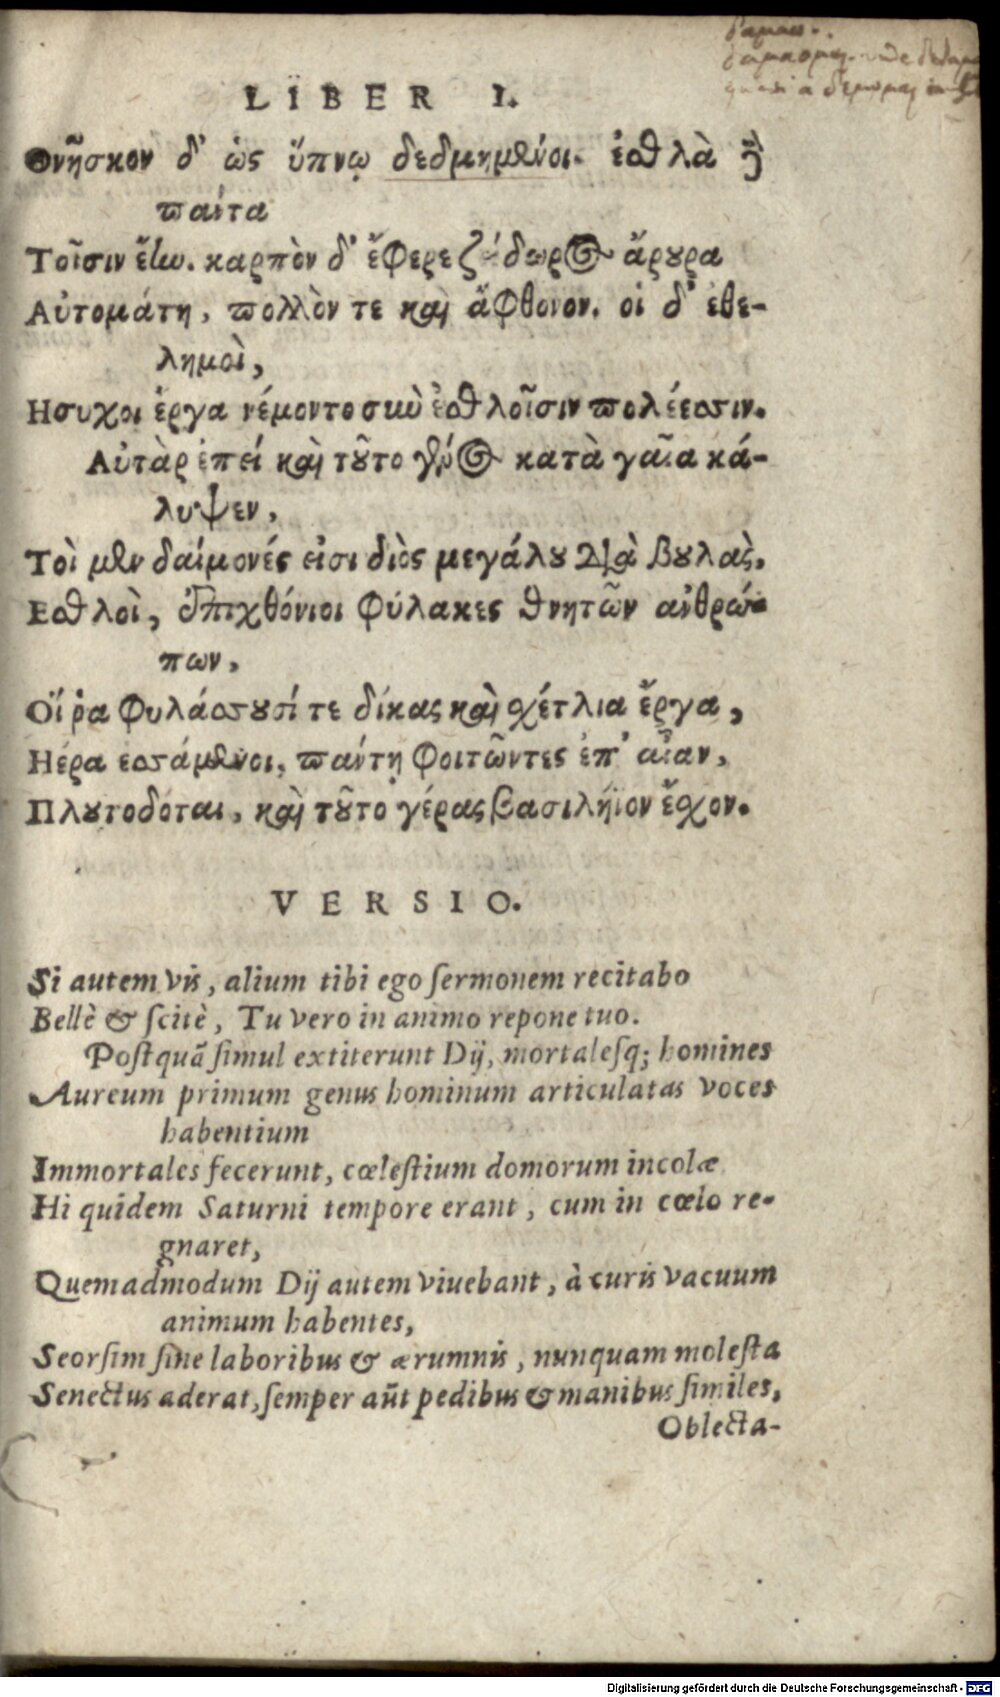 δαμαω.
LIBER I.
Θνῆσκον δ' ὡς ὕπνῳ δεδμημένοι. ἐσθλὰ δὲ
πάντα
Τοῖσιν ἔην. καρπὸν δ' ἔφερε ζείδωρος ἄρουρα
Αὐτομάτη, πολλόν τε καὶ ἄφθονον. οἱ δ' ἐθε-
λημοὶ,
Ησυχοι ἔργα νέμοντο σιω ἐσθλοῖσιν πολέεσσιν.
Αὐτὰρ ἐπεί καὶ τοῦτο γένος κατὰ γαῖα κά-
λυψεν,
Τοὶ μὲν δαίμονές εἰσι διὸς μεγάλου διὰ βουλὰς,
Εσθλοὶ, ἐπιχθόνιοι φύλακες θνητῶν ἀνθρώ-
πων,
Οἵ ῥα φυλάσσουσί τε δίκας καὶ σχέτλια ἔργα,
Ηέρα ἑσσάμενοι, πάντῃ φοιτῶντες ἐπ' αἶαν,
Πλουτοδόται, καὶ τοῦτο γέρας βασιλήϊον ἔσχον.
VERSIO.
Si autem vis, alium tibi ego sermonem recitabo
Bellè & scitè, Tu vero in animo repone tuo.
Postquã simul extiterunt Dij, mortalesq; homines
Aureum primum genus hominum articulatas voces
habentium
Immortales fecerunt, cœlestium domorum incolæ
Hi quidem Saturni tempore erant, cum in cœlo re-
gnaret,
Quemadmodum Dij autem viuebant, à curis vacuum
animum habentes,
Seorsim sine laboribus & ærumnis, nunquam molesta
Senectus aderat, semper aũt pedibus & manibus similes,
Oblecta-
Digitalisierung gefördert durch die Deutsche Forschungsgemeinschaft - DFG